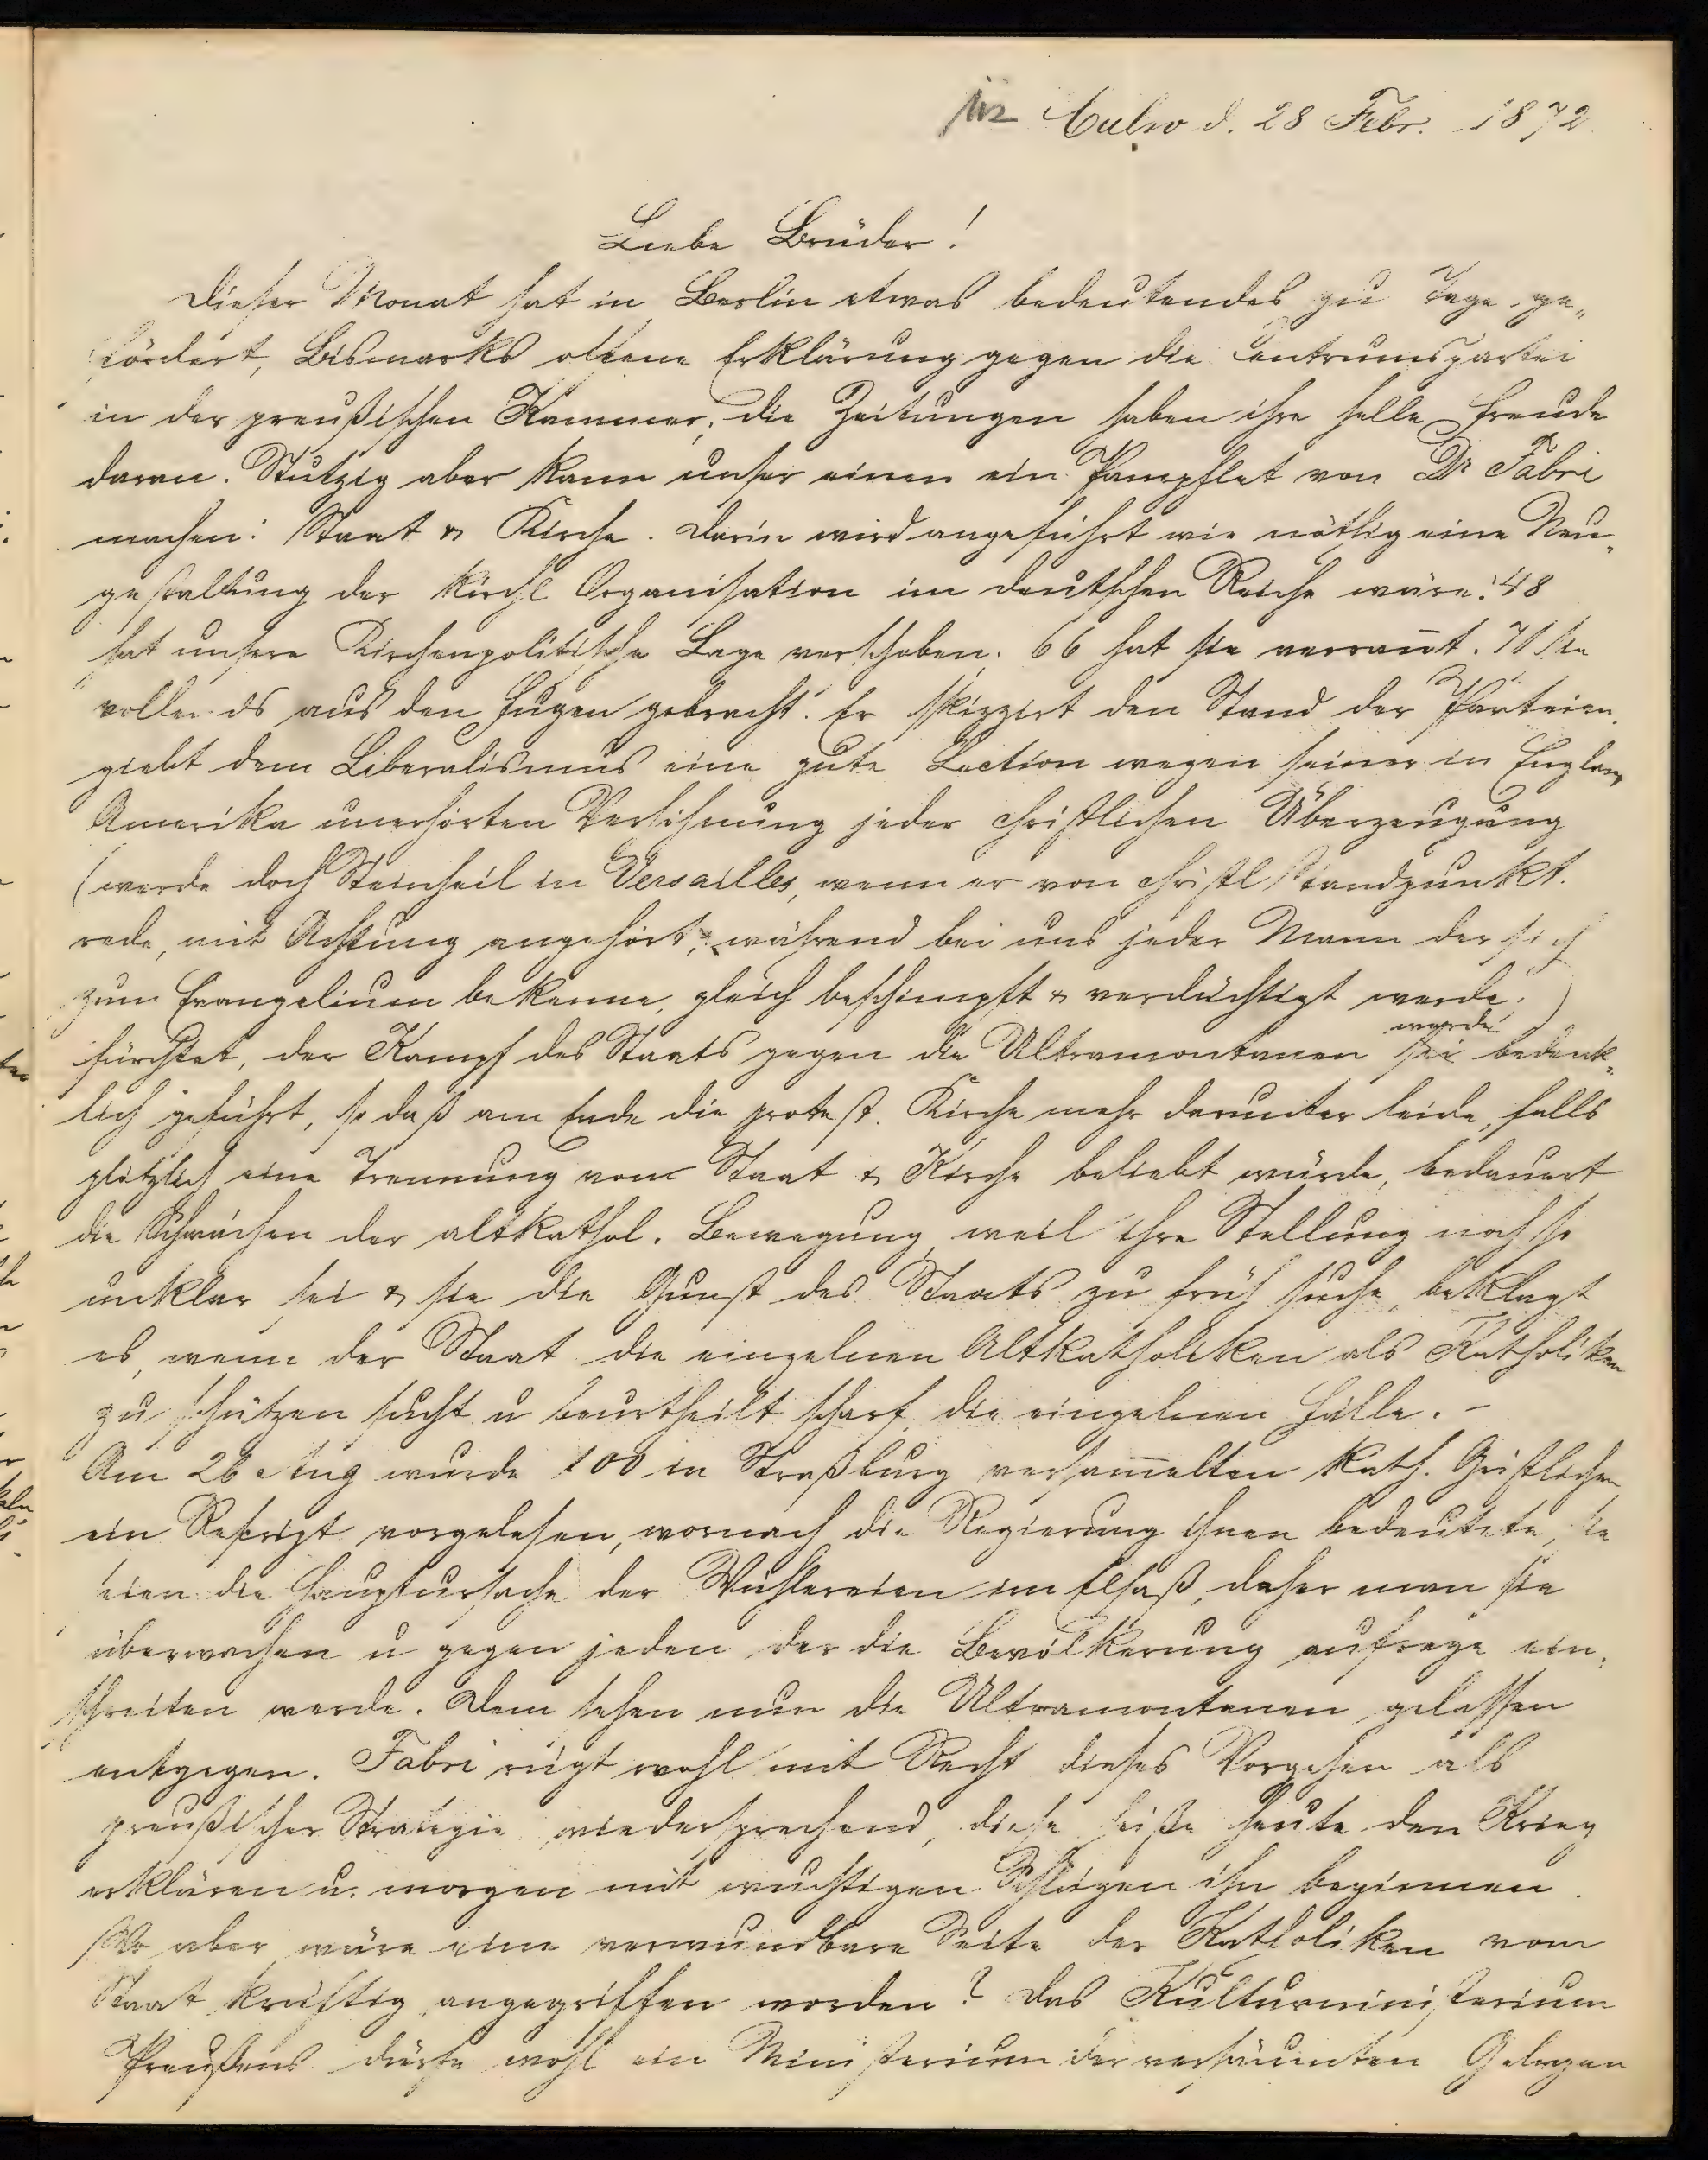 Calw d. 28 Febr. 1872
Liebe Brüder!
Dieser Monat hat in Berlin etwas bedeutendes zu Tage ge„
fördert, Bismarks offene Erklärung gegen die Centrumspartei
in der preußischen Kammer; die Zeitungen haben ihre helle Freude
daran. Stutzig aber kann unser einen ein Pamphlet von Dr Fabri
machen: Staat & Kirche. Darin wird angeführt wie nöthig eine Neu„
gestaltung der kirchl Organisation im deutschen Reiche wäre. '48
hat unsere Kirchenpolitische Lage verschoben, 66 hat sie verrannt. 71 sie
vollends aus den Fugen gebracht'. Er skizzirt den Stand der Parteien,
giebt dem Liberalismus eine gute Lection wegen seiner in England
Amerika unerhörten Verhöhnung jeder christlichen Überzeugung
(werde doch Steinheil in Versailles, wenn er von christl Standpunkt
rede, mit Achtung angehört, während bei uns jeder Mann der sich
zum Evangelium bekenne, gleich beschimpft & verdächtigt werde.)
fürchtet, der Kampf des Staats gegen die Ultramontanen sei werde bedenk„
lich geführt, so daß am Ende die protest. Kirche mehr darunter leide, falls
plötzlich eine Trennung von Staat & Kirche beliebt würde, bedauert
die Schwächen der altkathol. Bewegung, weil ihre Stellung noch so
unklar sei & sie die Gunst des Staats zu früh suche, beklagt
es, wenn der Staat die einzelnen Altkatholiken als Katholiken
zu schützen sucht u beurtheilt scharf die einzelnen Fälle. –
Am 26 Aug wurde 100 in Straßburg versammelten kath. Geistlichen
ein Rescript vorgelesen, wornach die Regierung ihnen bedeutete, sie
seien die Hauptursache der Wühlereien im Elsaß, daher man sie
überwachen u gegen jeden der die Bevölkerung aufrege ein„
schreiten werde. Dem sehen nun die Ultramontanen gelassen
entgegen. Fabri rügt wohl mit Recht dieses Vorgehen als
preußischer Strategie wiedersprechend, diese heiße heute den Krieg
erklären u. morgen mit wuchtigen Schlägen ihn beginnen.
Wo aber wäre eine verwundbare Seite der Katholiken vom
Staat kräftig angegriffen worden? Das Kulturministerium
Preußens dürfe wohl ein Ministerium der versäumten Gelegen